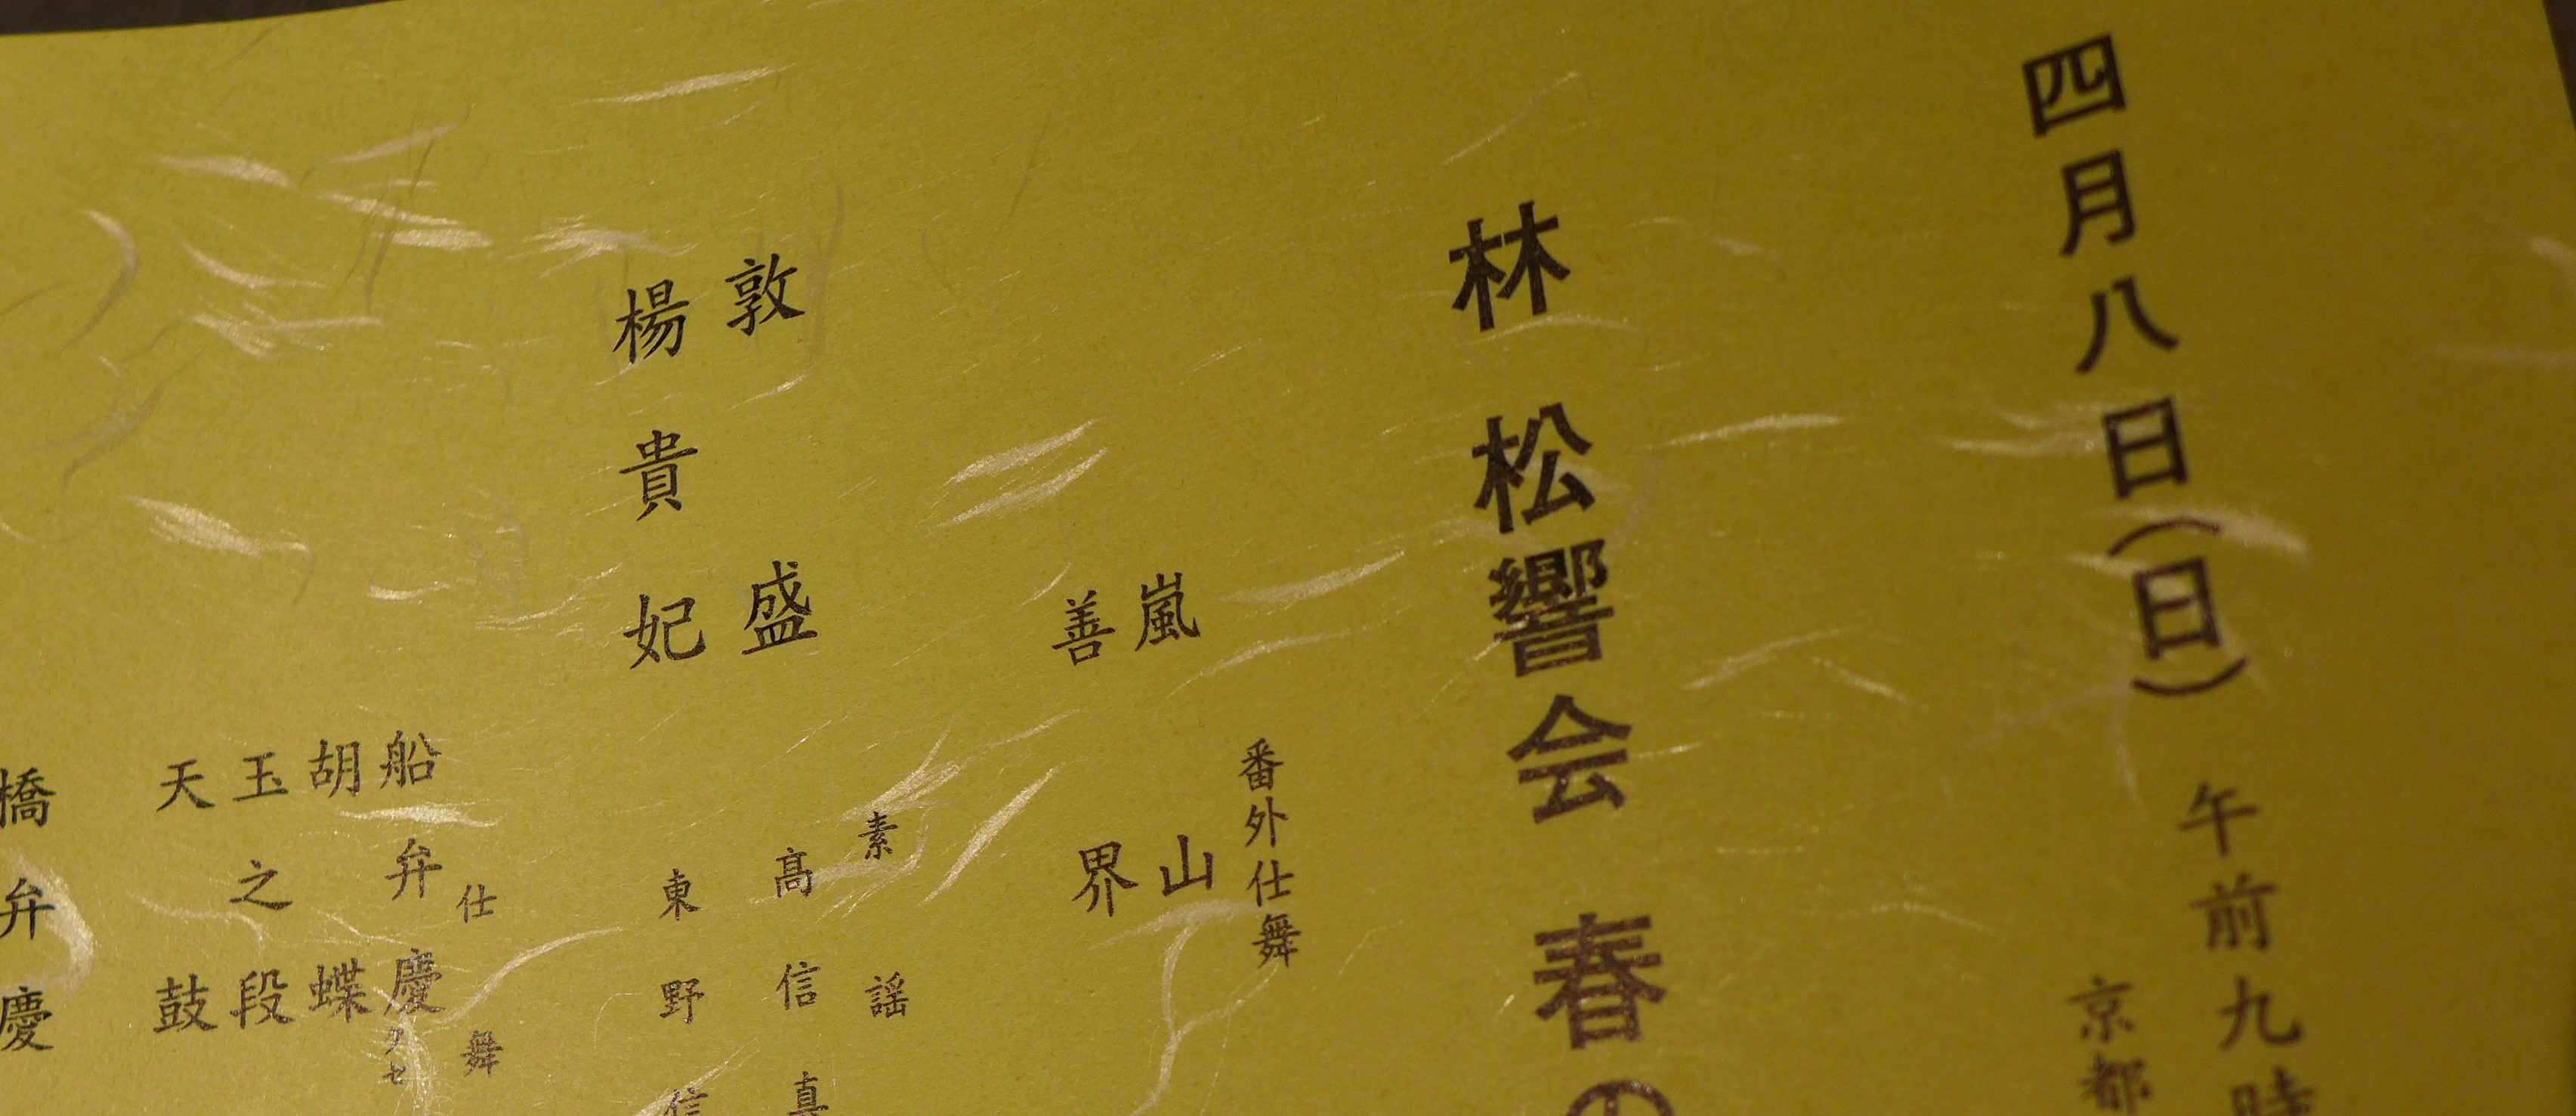 四月八日(日) 午前九時
京都
林松響会 春の
番外仕舞
嵐山
善界
素謡
敦盛 髙信真
楊貴妃 東野信
仕舞
船弁慶クセ
胡蝶
玉之段
天鼓
橋弁慶